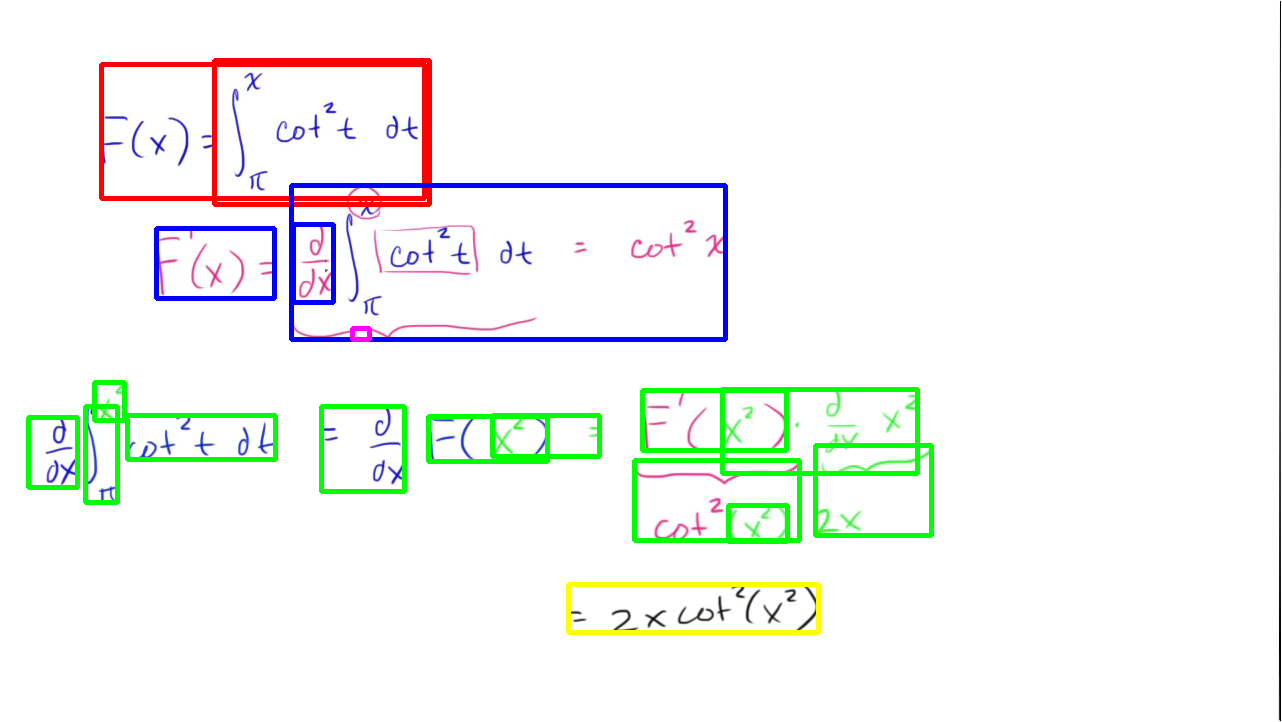 F(x) = ∫_π^x cot²t dt
F'(x) = d/dx ∫_π^x cot²t dt = cot²x
d/dx ∫_π^(x²) cot²t dt = d/dx F(x²) = F'(x²) · d/dx x²
cot²(x²) 2x
= 2x cot²(x²)